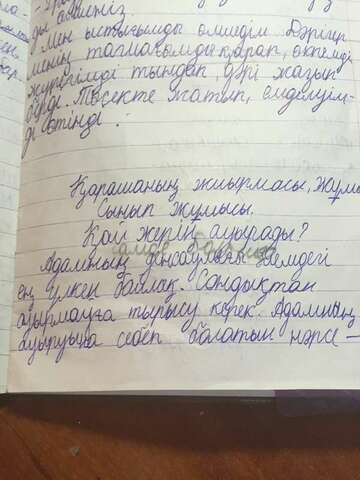 ды
мен ыстығымды өлшедім. Дәрігер
менің тамағымды қарап, өкпемді
жүрегімді тыңдап, дәрі жазып
берді. Төсекте жатып, емделуім-
ді өтінді.
Қарашаның жиырмасы, жұма
Сынып жұмысы.
Қай жерің ауырады?
Адамның денсаулығы әлемдегі
ең үлкен байлық. Сондықтан
ауырмауға тырысу керек. Адамның
ауыруына себеп болатын нәрсе –